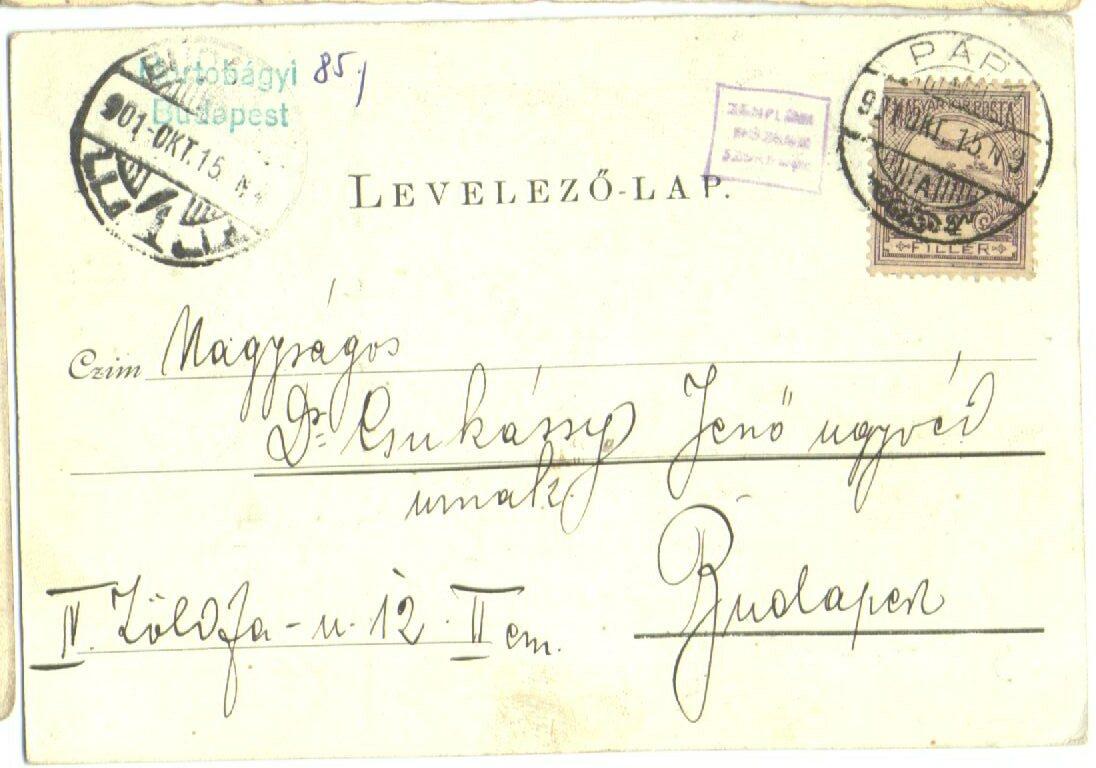 Hortobágyi
Budapest
85,
901-OKT.15. N
LEVELEZŐ-LAP.
PÁP
MAGYAR KIR. POSTA
OKT. 15. N
FILLÉR
Czim Nagyságos
Dr. Csukássy Jenő ügyvéd
urnak.
Budapest
IV. Zöldfa-u. 12. II em.